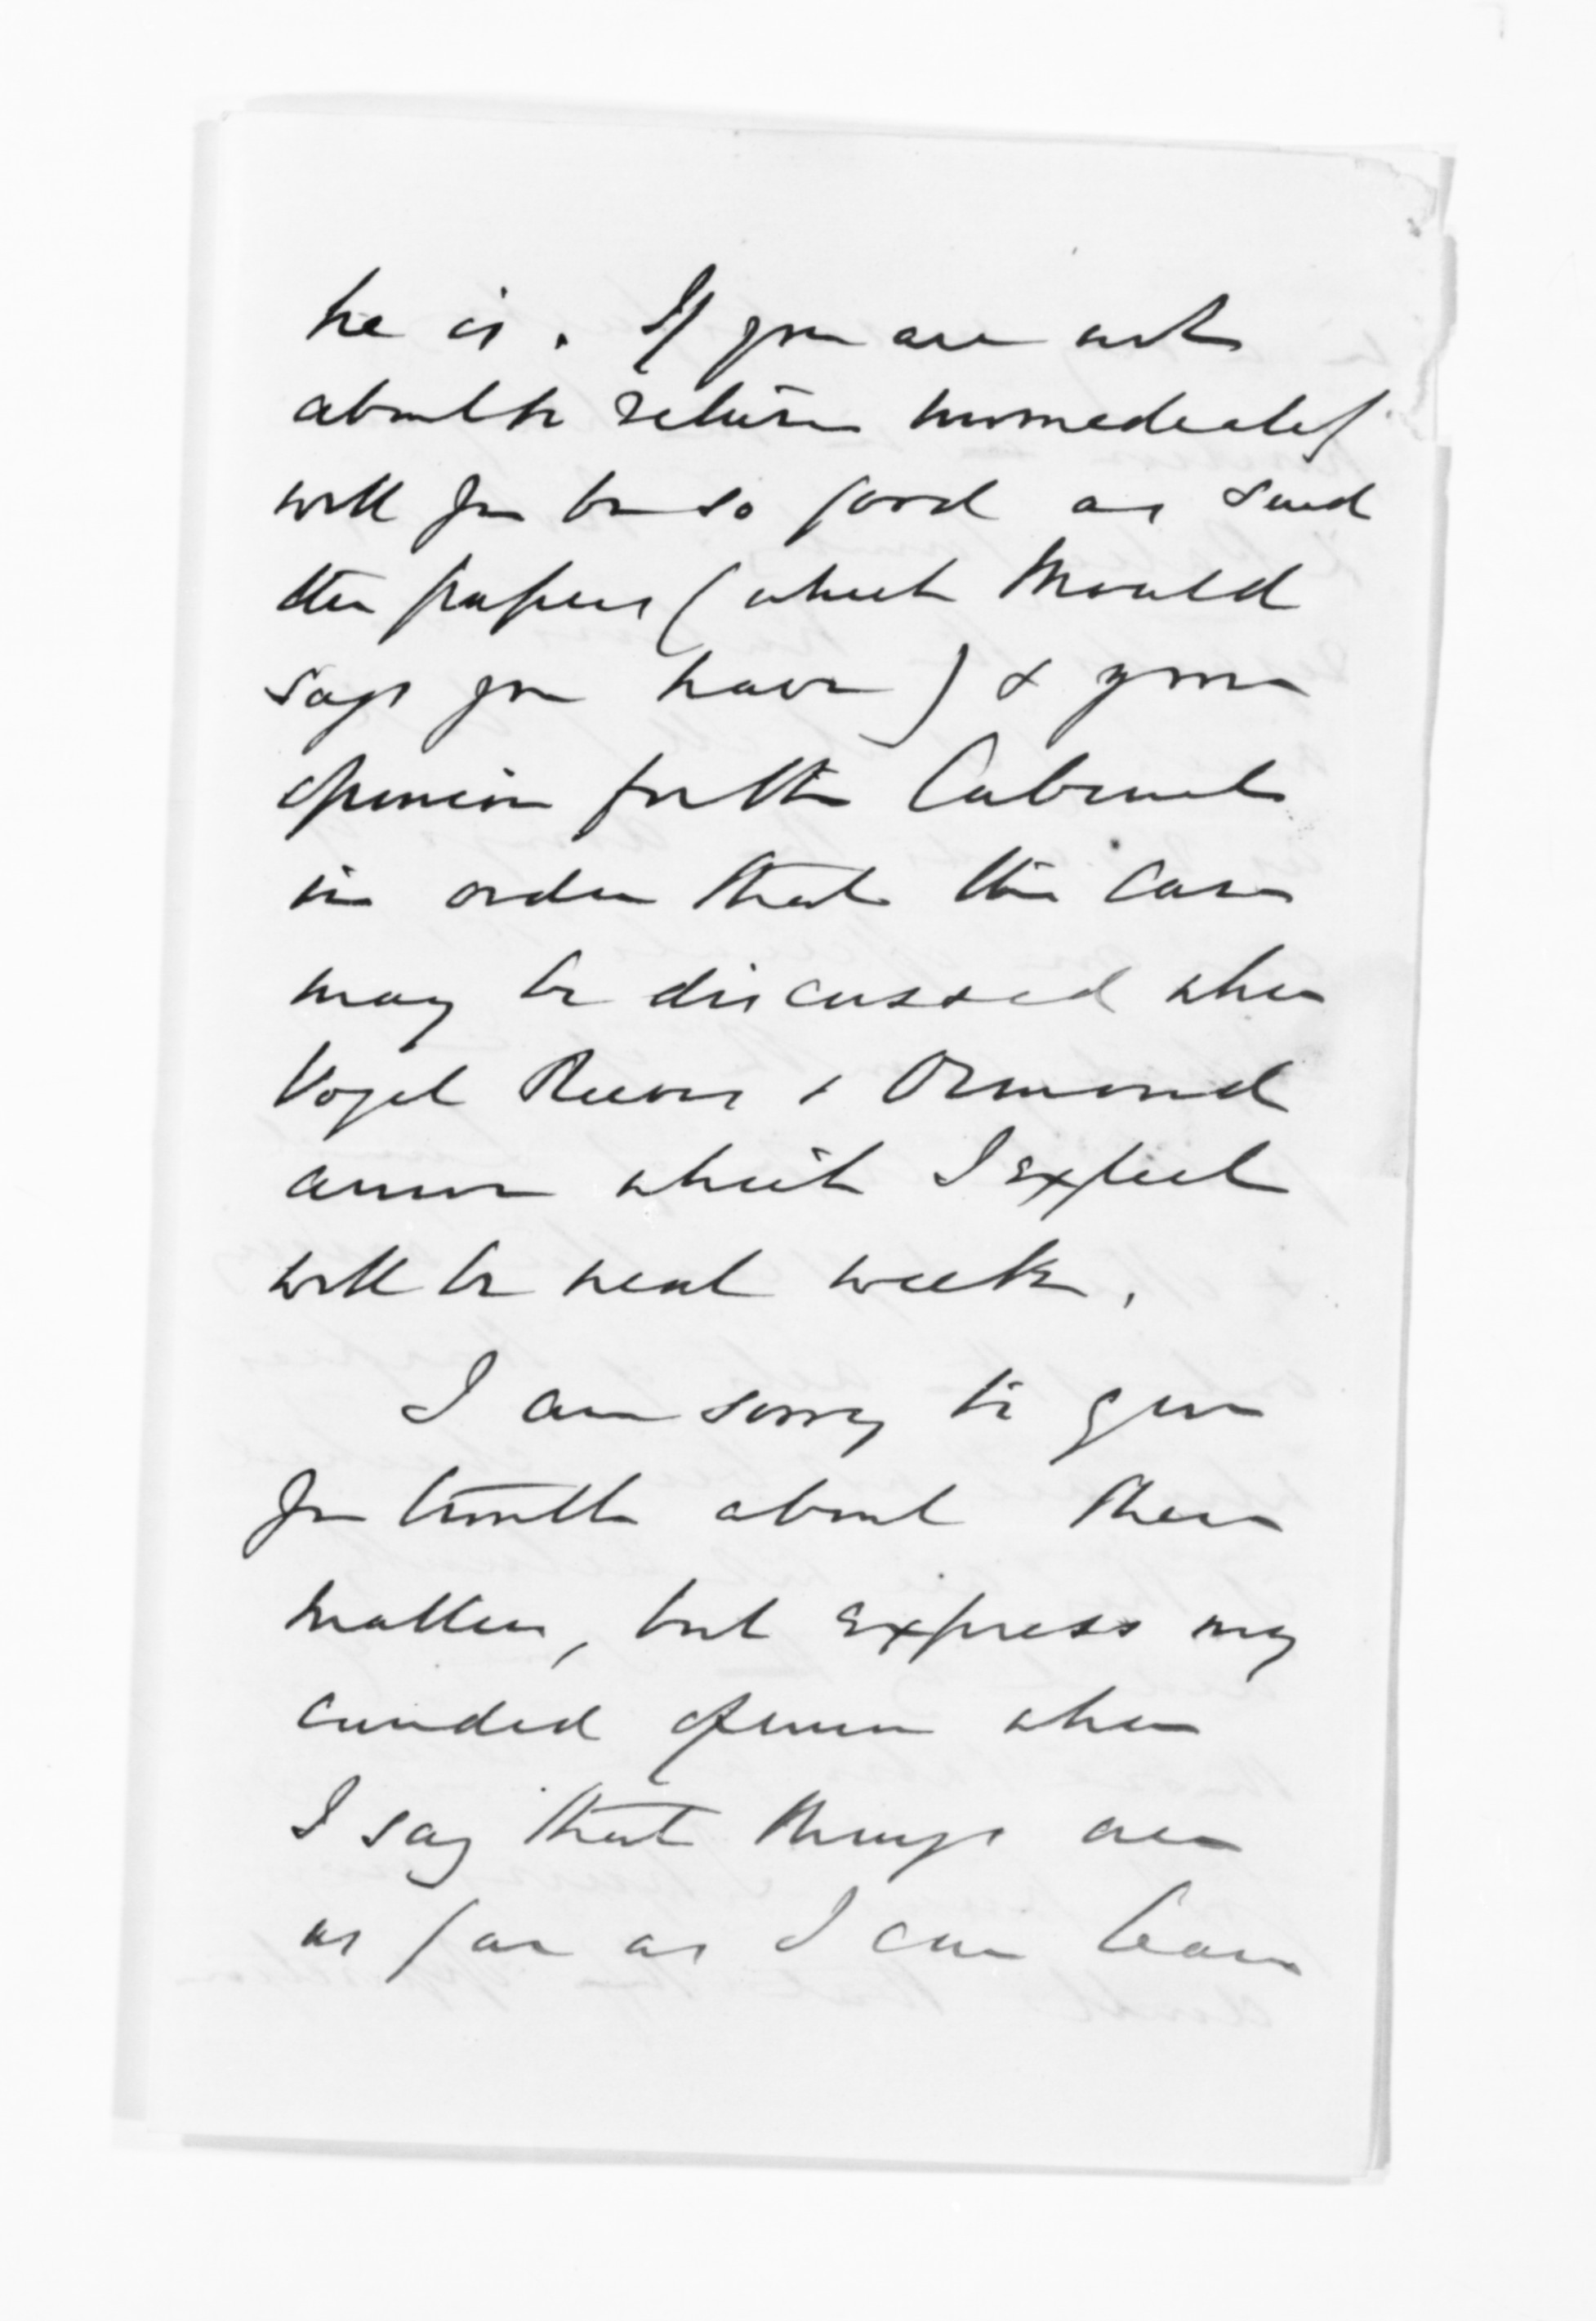 he is. If you are not
about to return immediately
will you be so good as send
the papers (which Mould
says you have) & your
opinion for the Cabinet
in order that the case
may be discussed when
Vogel Reeves & Ormond
arrive which I expect
will be next week.
I am sorry to give
you trouble about these
matters, but express my
candid opinion when
I say that things are
as far as I can learn